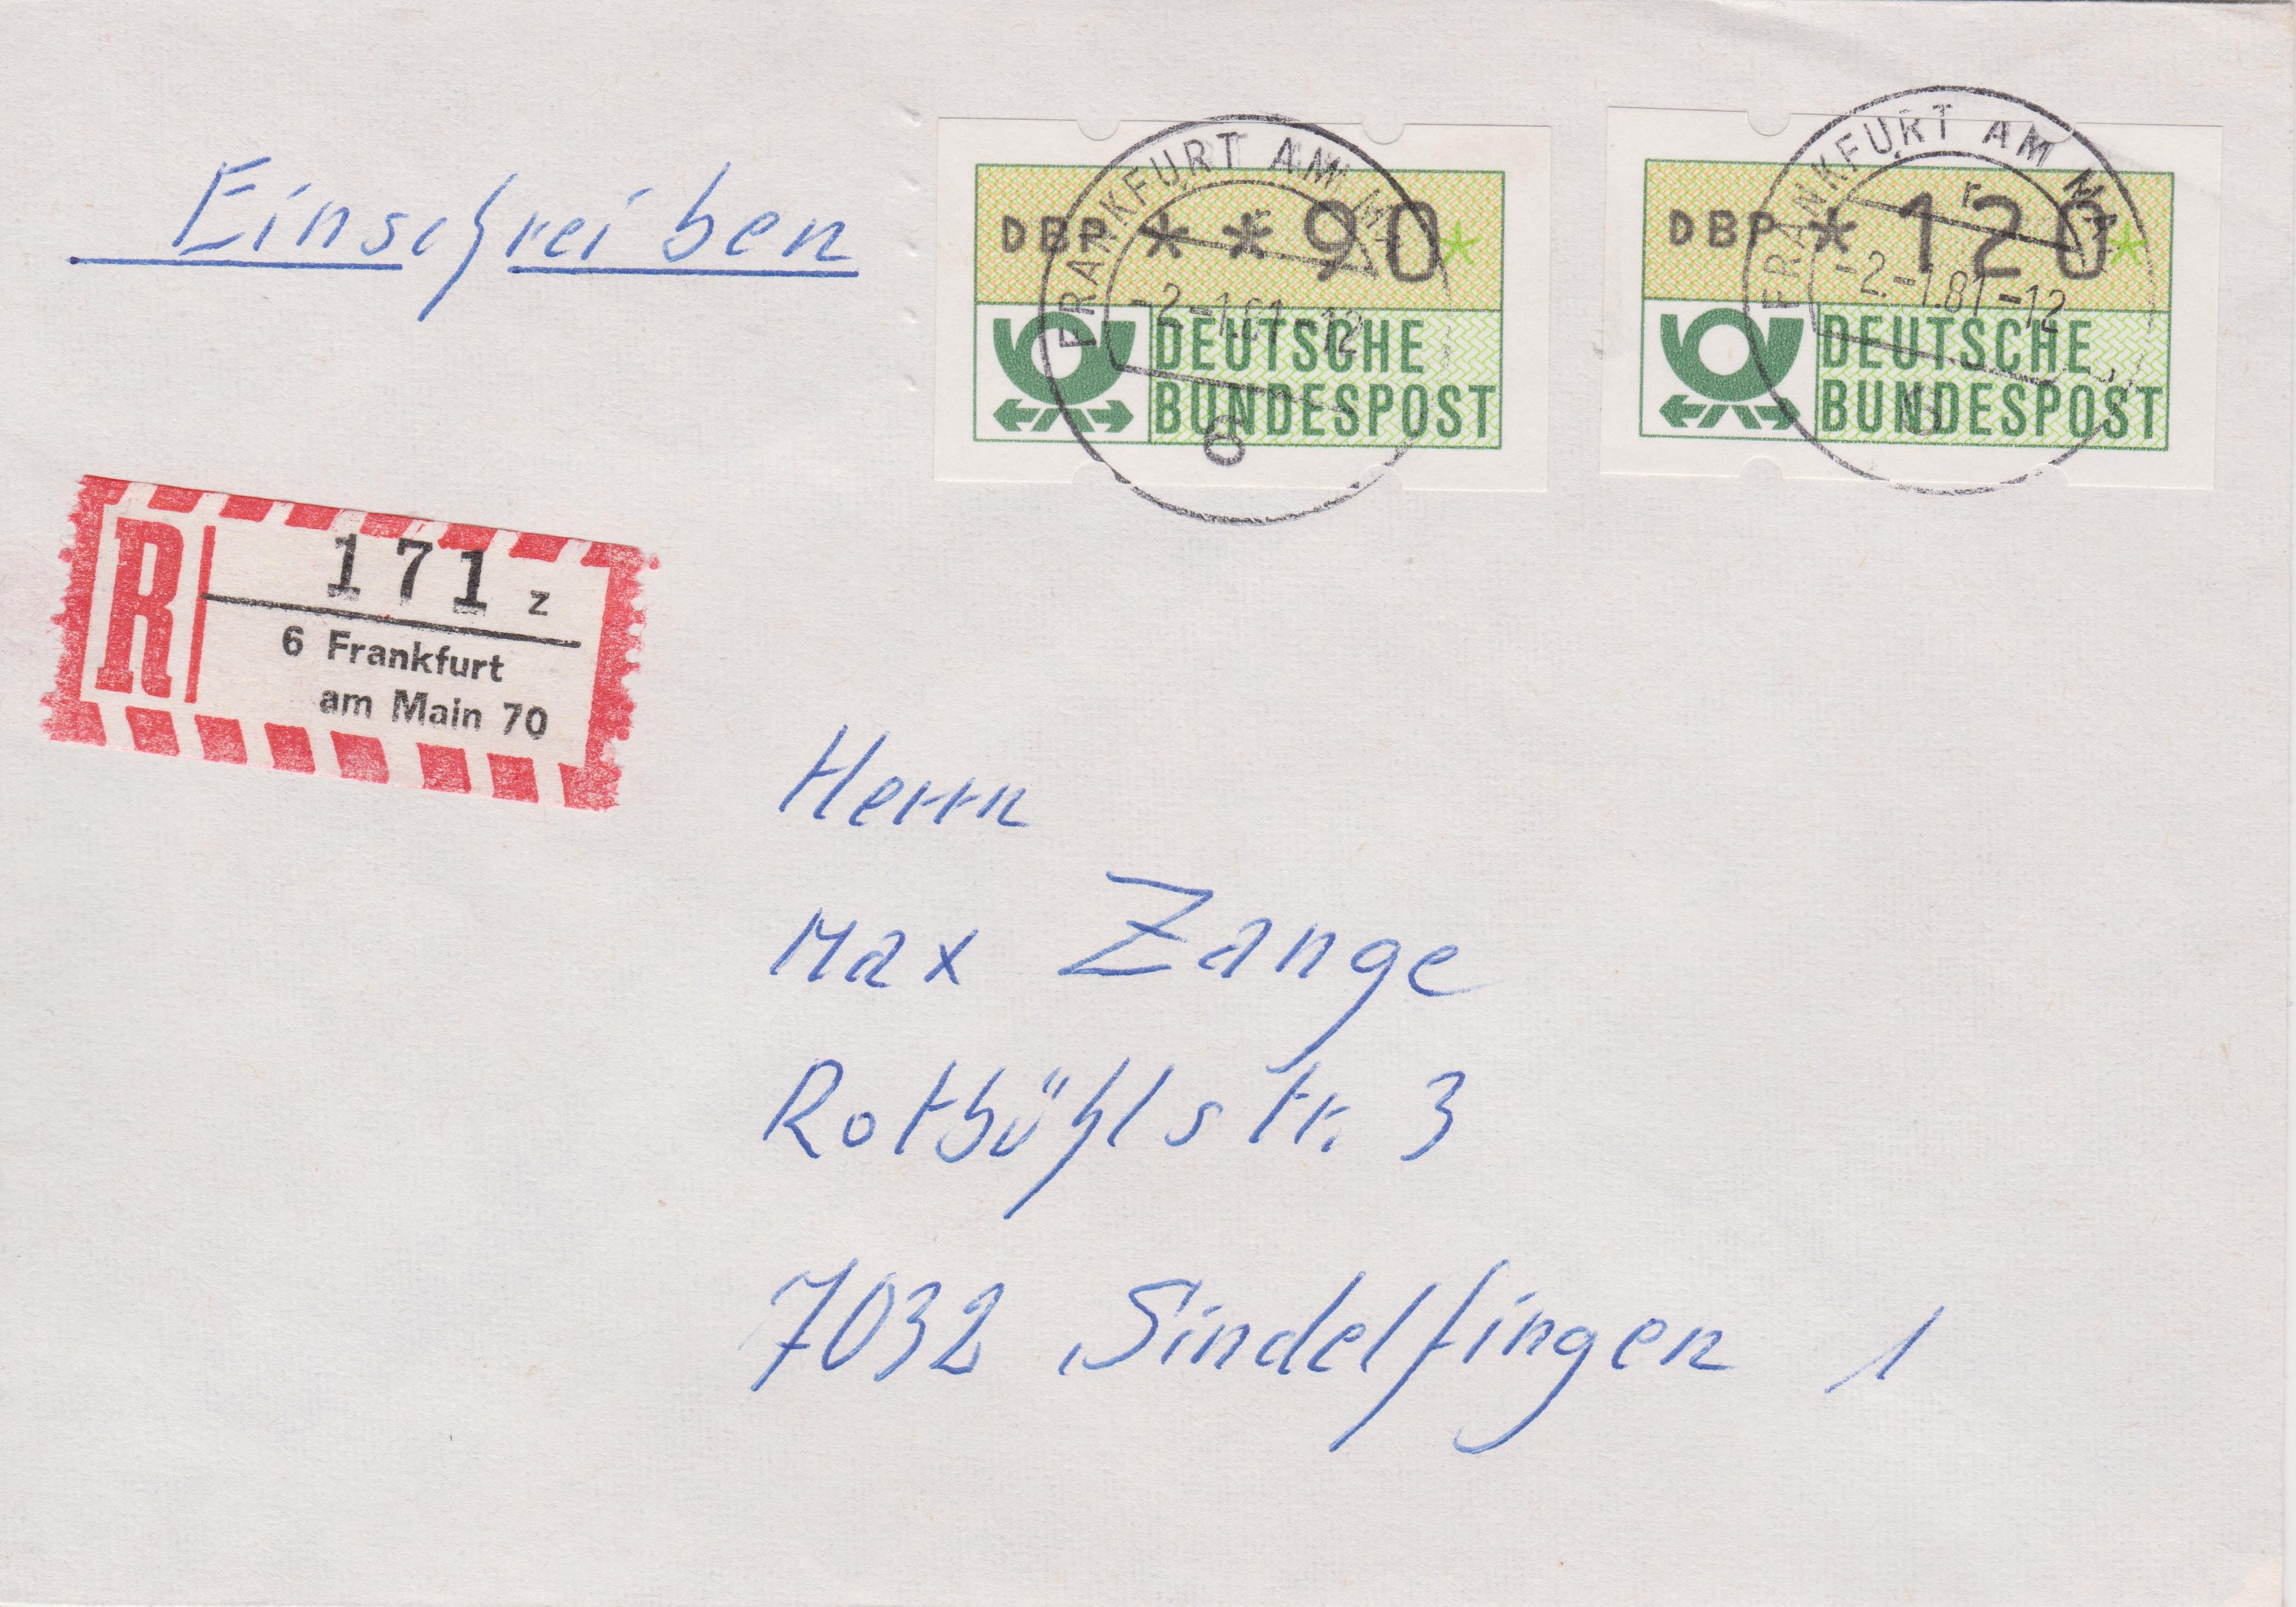 Einschreiben
DBP **90*
DEUTSCHE
BUNDESPOST
FRANKFURT AM MA
-2.-1.81-12
6
DBP *120*
DEUTSCHE
BUNDESPOST
FRANKFURT AM MA
r
-2.-1.81-12
R
171 z
6 Frankfurt
am Main 70
Herrn
Max Zange
Rotbühlstr. 3
7032 Sindelfingen 1